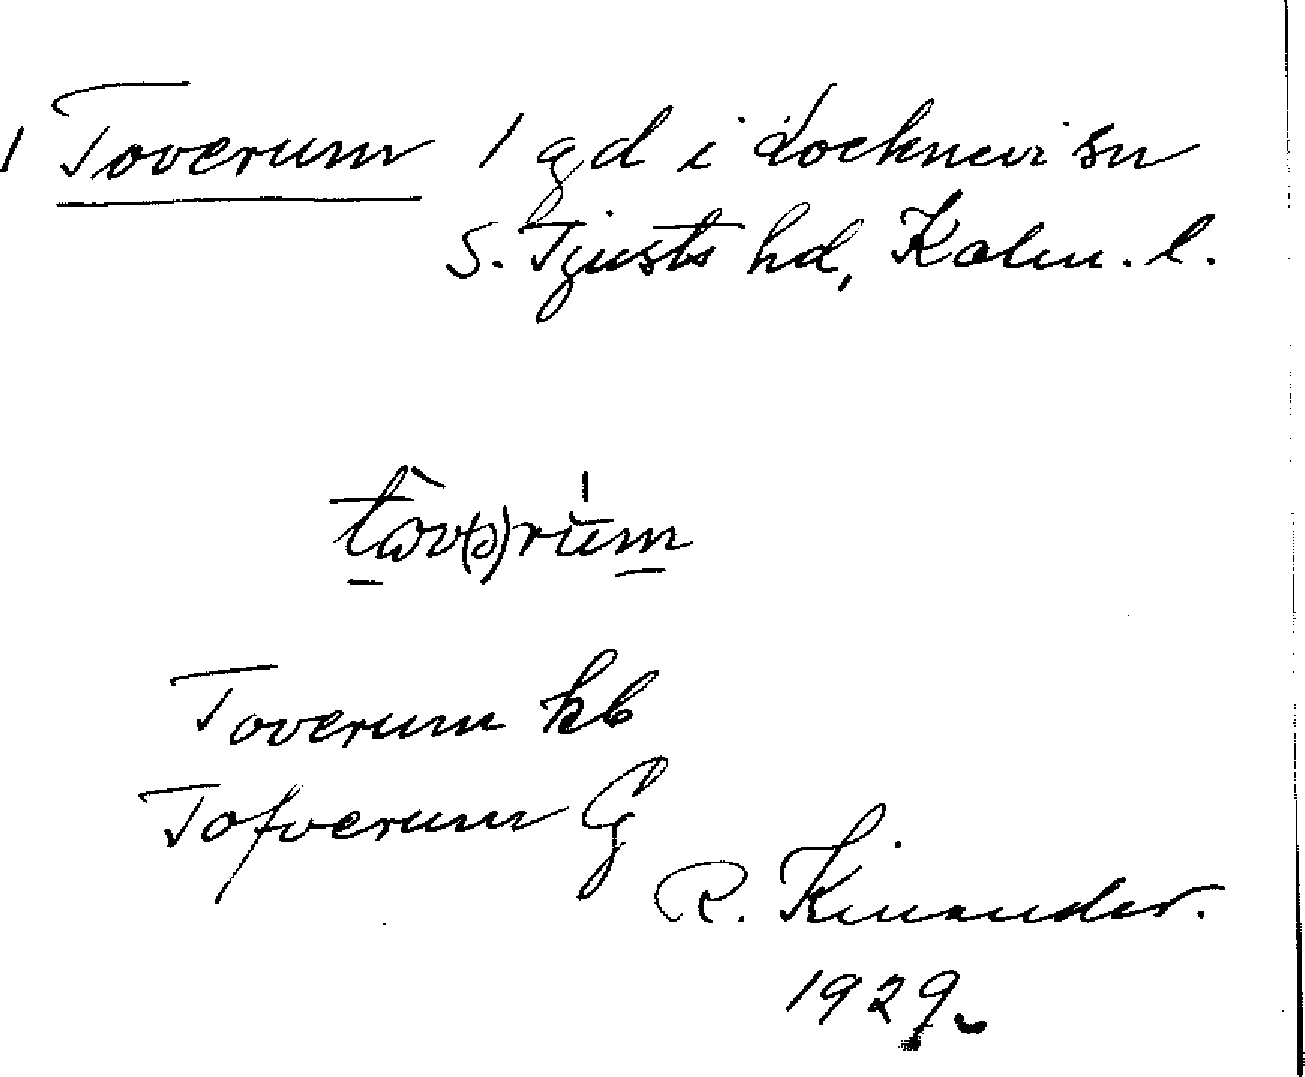 1 Toverum 1 gd i Locknevi sn
S. Tjusts hd, Kalm. l.
tωv(ə)rùm
Toverum kb
Tofverum G
R. Kinander.
1929.